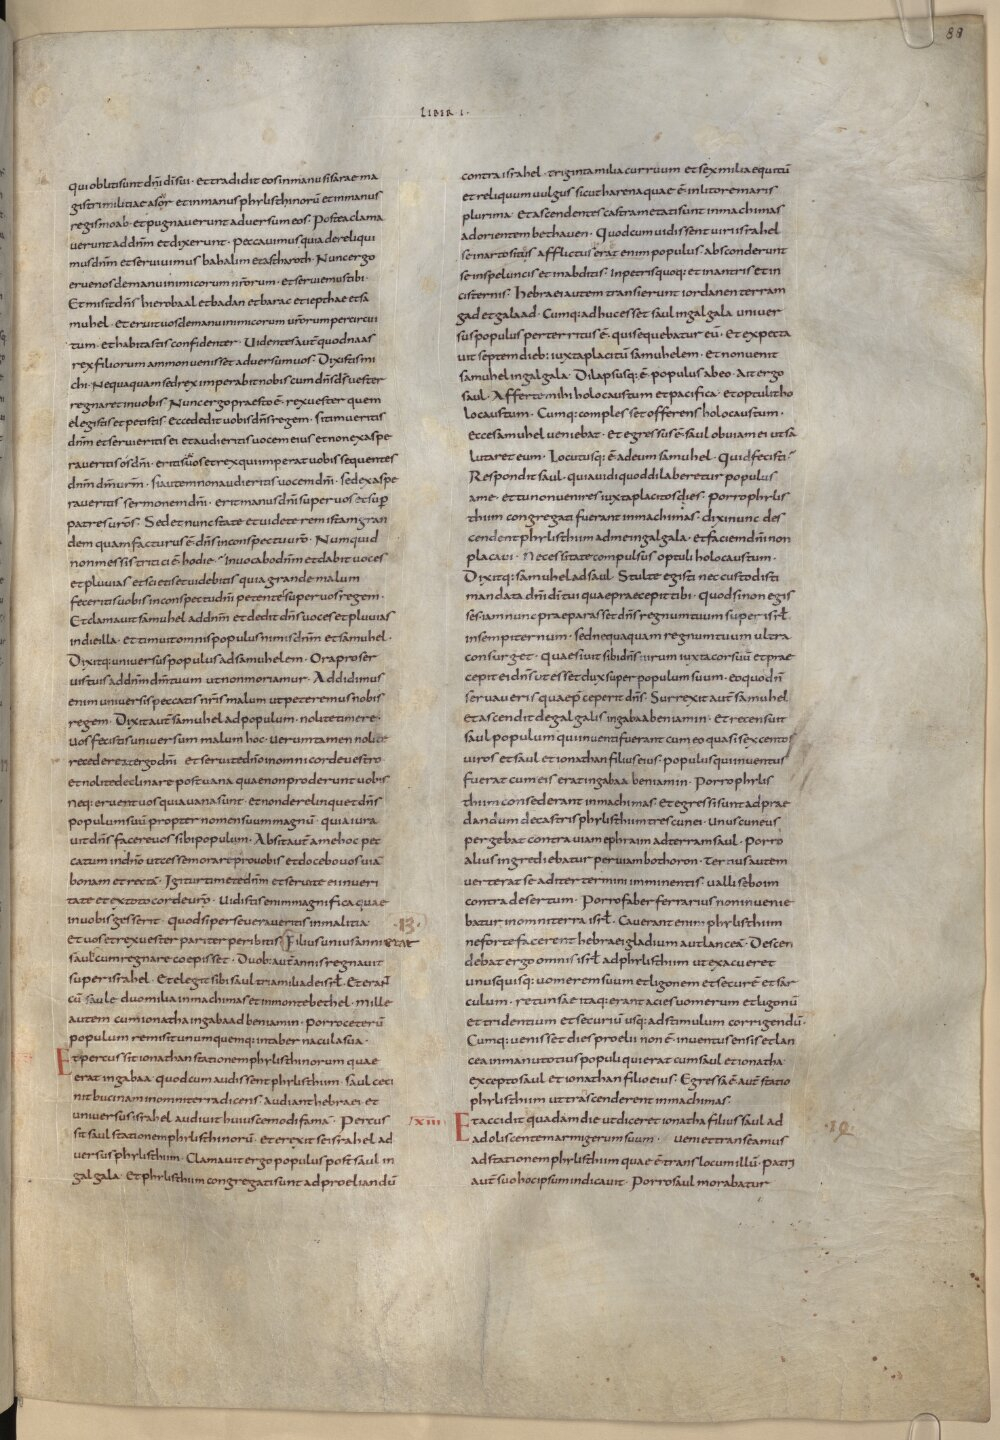 88
LIBER I·
qui obliti sunt dñi di sui · et tradidit eos in manu sisarae ma
gistri militiae asor et in manus phylisthinorū et in manus
regis moab · et pugnaverunt adversum eos · Postea clama
verunt ad dñm et dixerunt · Peccavimus quia dereliqui
mus dñm et servivimus bahalim et astharoth · Nunc ergo
erue nos de manu inimicorum nr̄orum · et serviemus tibi ·
Et misit dñs hierobaal et badan et barac et iepthae et sa
muhel · et eruit vos de manu inimicorum ur̄orum per circui
tum · et habitastis confidenter · Videntes aut̄ quod naas
rex filiorum ammon venisset adversum vos · Dixistis mi
chi · Nequaquam sed rex imperabit nobis cum dñs ds̄ vester
regnaret in vobis · Nunc ergo praesto ē rex vester quem
elegistis et petistis · Ecce dedit vobis dñs regem · si timueritis
dñm et servieritis ei et audieritis vocem eius et non exaspe
raveritis os dñi · eritis vos et rex qui imperat vobis sequentes
dñm dm̄ urm̄ · si autem non audieritis vocem dñi · sed exaspe
raveritis sermonem dñi · erit manus dñi super vos et sup̄
patres ur̄os · Sed et nunc state et videte rem istam gran
dem quam facturus ē dñs in conspectu ur̄o · Numquid
non messis tritici ē hodie · Invocabo dñm et dabit voces
et pluvias et scietis et videbitis quia grande malum
feceritis vobis in conspectu dñi petentes super vos regem ·
Et clamavit samuhel ad dñm et dedit dñs voces et pluvias
in die illa · et timuit omnis populus nimis dñm et samuhel ·
Dixitq: universus populus ad samuhelem · Ora pro ser
vis tuis ad dñm dm̄ tuum ut non moriamur · Addidimus
enim universis peccatis nr̄is malum ut peteremus nobis
regem · Dixit aut̄ samuhel ad populum · nolite timere ·
vos fecistis universum malum hoc · verumtamen nolite
recedere a tergo dñi · et servite dño in omni corde vestro
et nolite declinare post vana quae non proderunt vobis
neq: eruent vos quia vana sunt · et non derelinquet dñs
populum suū propter nomen suum magnū · quia iura
vit dñs facere vos sibi populum · Absit aut̄ a me hoc pec
catum in dño ut cessem orare pro vobis et docebo vos viā
bonam et rectā · Igitur timete dñm et servite ei in veri
tate et ex toto corde ur̄o · Vidistis enim magnifica quae
in vobis gesserit · quod si perseveraveritis in malitia ·
et vos et rex vester pariter peribitis · Filius unius anni erat
·13·
saul cum regnare coepisset · Duob: aut̄ annis regnavit
super israhel · Et elegit sibi saul tria milia de isrl̄ · Et erant
cū saule duo milia in machmas et in monte bethel · mille
autem cum ionatha in gabaad beniamin · Porro ceterū
populum remisit unumquemq: in tabernacula sua ·
Et percussit ionathan stationem phylisthinorum quae
erat in gabaa · quod cum audissent phylisthiim · saul ceci
nit bucina in omni terra dicens · audiant hebraei et
universus israhel audivit huiuscemodi famā · Percus
sit saul stationem phylisthinorū · et erexit se israhel ad
versus phylisthiim · Clamavit ergo populus post saul in
galgala · Et phylisthiim congregati sunt ad proeliandū
contra israhel · triginta milia curruum et sex milia equitū
et reliquum vulgus sicut harena quae ē in litore maris
plurima · Et ascendentes castra metati sunt in machmas
ad orientem bethaven · Quod cum vidissent viri israhel
se in arto sitos afflictus erat enim populus · absconderunt
se in speluncis et in abditis · in petris quoq: et in antris et in
cisternis · hebraei autem transierunt iordanen terram
gad et galaad · Cumq: adhuc esset saul in galgala univer
sus populus perterritus ē · qui sequebatur eū · Et expecta
vit septem dieb: iuxta placitū samuhelem · et non venit
samuhel in galgala · Dilapsusq: ē populus ab eo · Ait ergo
saul · Afferte mihi holocaustum et pacifica · et optulit ho
locaustum · Cumq: complesset offerens holocaustum ·
ecce samuhel veniebat · et egressus ē saul obviam ei ut sa
lutaret eum · Locutusq: ē ad eum samuhel · Quid fecisti ·
Respondit saul · quia vidi quod dilaberetur populus
a me · et tu non venires iuxta placitos dies · porro phylis
thiim congregati fuerant in machmas · dixi nunc des
cendent phylisthiim ad me in galgala · et faciem dñi non
placavi · Necessitate compulsus optuli holocaustum ·
Dixitq: samuhel ad saul · Stulte egisti nec custodisti
mandata dñi di tui quae praecepit tibi · quod si non egis
ses iam nunc praeparasset dñs regnum tuum super isrl̄
in sempiternum · sed nequaquam regnum tuum ultra
consurget · quaesivit sibi dñs virum iuxta cor suū et prae
cepit ei dñs ut esset dux super populum suum · eo quod nō
servaveris quae p̄ceperit dñs · Surrexit aut̄ samuhel
et ascendit de galgalis in gabaa beniamin · et recensuit
saul populum qui inventi fuerant cum eo quasi sexcentos
viros et saul et ionathan filius eius · populusq: inventus
fuerat cum eis erat in gabaa beniamin · Porro phylis
thiim consederant in machmas · et egressi sunt ad prae
dandum de castris phylisthiim tres cunei · unus cuneus
pergebat contra viam ephraim ad terram saul · Porro
alius ingrediebatur per viam bothoron · Tertius autem
verterat se ad iter termini imminentis valli seboim
contra desertum · Porro faber ferrarius non invenie
batur in omni terra isrl̄ · Caverant enim phylisthiim
ne forte facerent hebraei gladium aut lanceā · Descen
debat ergo omnis isrl̄ ad phylisthiim ut exacueret
unusquisq: vomerem suum et ligonem et securē et sar
culum · retunsae itaq: erant acies vomerum et ligonū
et tridentium et securiū usq: ad stimulum corrigendū ·
Cumq: venisset dies proelii non ē inventus ensis et lan
cea in manu totius populi qui erat cum saul et ionatha
excepto saul et ionathan filio eius · Egressa ē aut̄ statio
phylisthiim ut trascenderent in machmas ·
/xiiii ·
Et accidit quadam die ut diceret ionatha filius saul ad
adoliscentem armigerum suum · veni et transeamus
·14·
ad stationem phylisthiim quae ē trans locum illū · Patri
aut̄ suo hoc ipsum indicavit · Porro saul morabatur